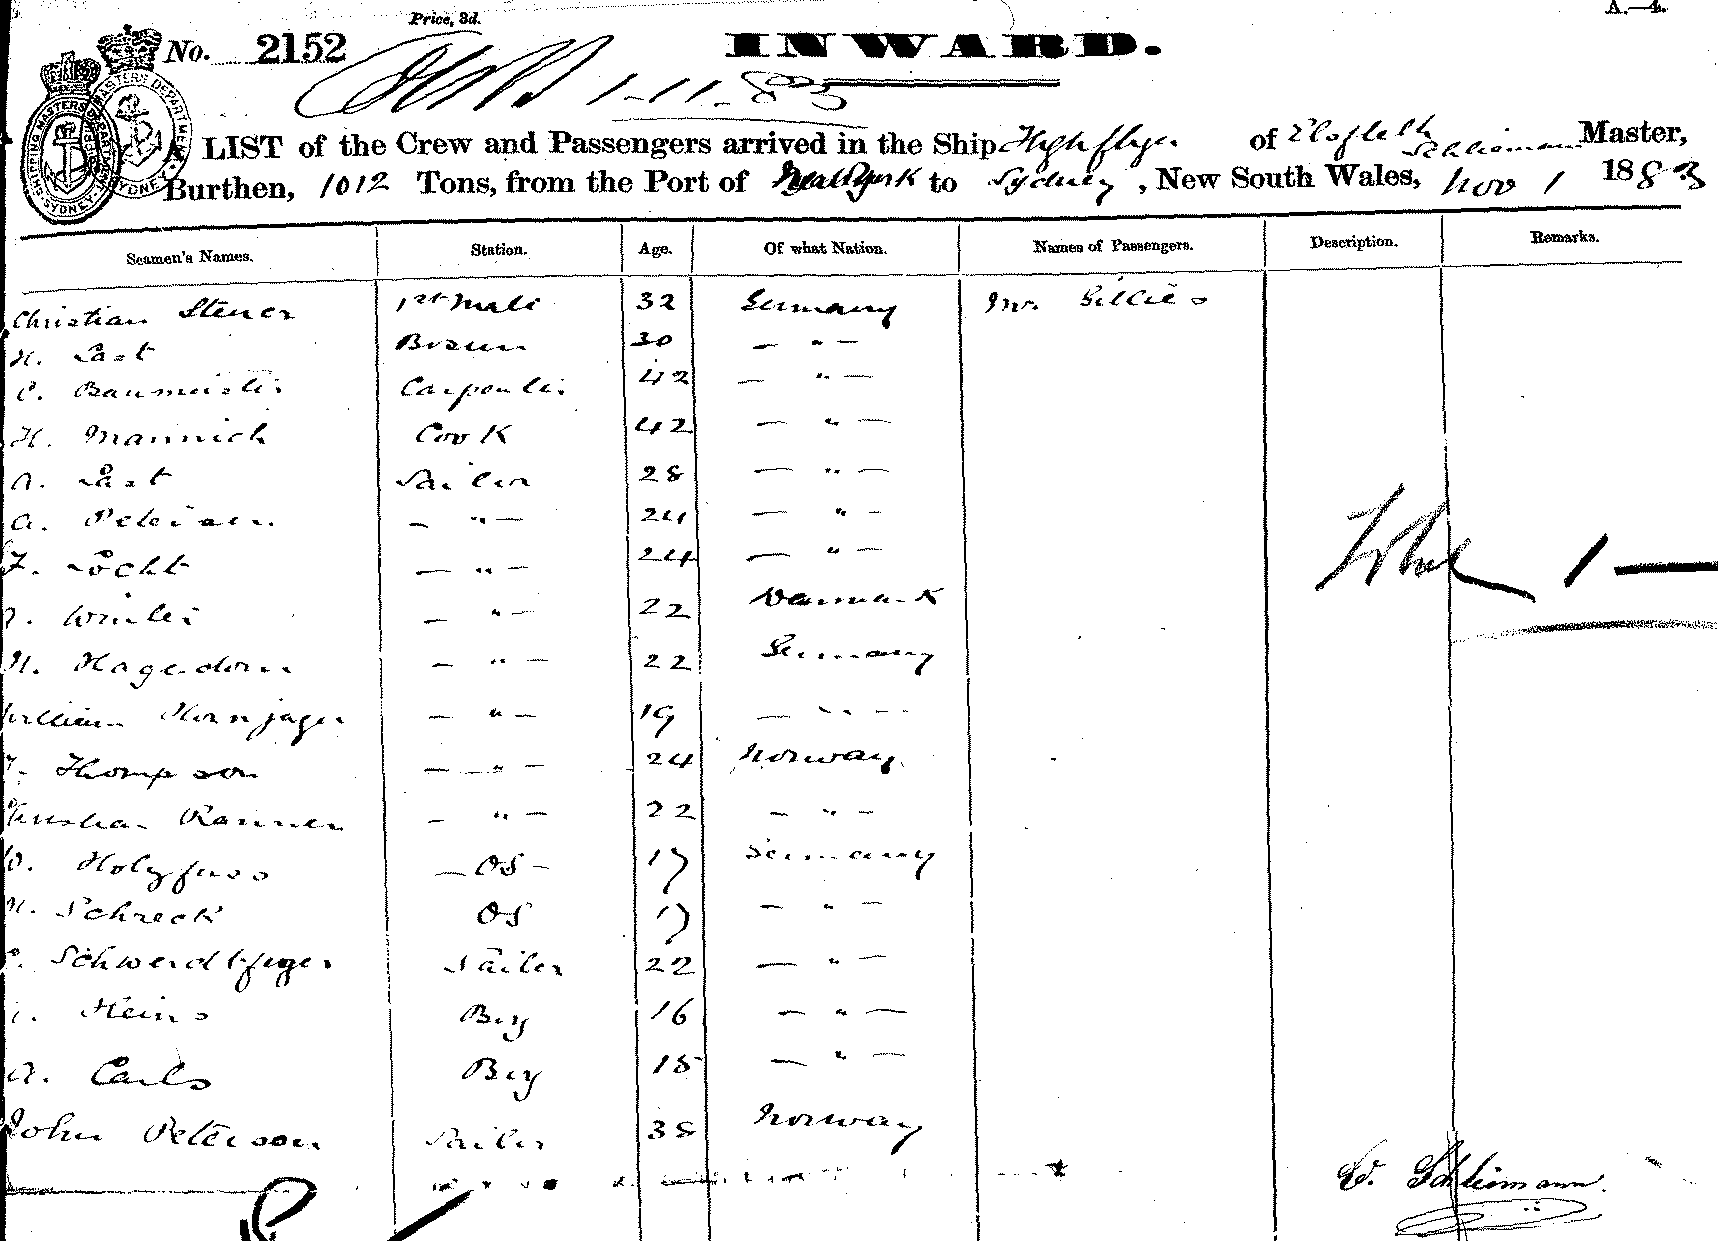 A.—4.
Price, 3d.
No. 2152
INWARD.
1-11-83
A LIST of the Crew and Passengers arrived in the Ship Highflyer of Elsfleth Schliemann Master,
Burthen, 1012 Tons, from the Port of New York to Sydney, New South Wales, Nov 1 1883
Seamen's Names. Station. Age. Of what Nation. Names of Passengers. Description. Remarks.
Christian Stener 1st Mate 32 Germany Mr. Gillies
H. Last Bosun 30 — " —
C. Baumeister Carpenter 42 — " —
H. Mannich Cook 42 — " —
A. Last Sailor 28 — " —
A. Petersen — " — 24 — " —
F. Löcht — " — 24 — " —
Winter — " — 22 Denmark
H. Hagedorn — " — 22 Germany
William Hornjager — " — 19 — " —
Thompson — " — 24 Norway
Christian Rannen — " — 22 — " —
Holyfuss — OS — 17 Germany
H. Schreck OS 17 — " —
C. Schwerdtfeger Sailer 22 — " —
Heins Boy 16 — " —
A. Carls Boy 15 — " —
John Peterson Sailer 38 Norway
Total 1 —
Ed. Schliemann.